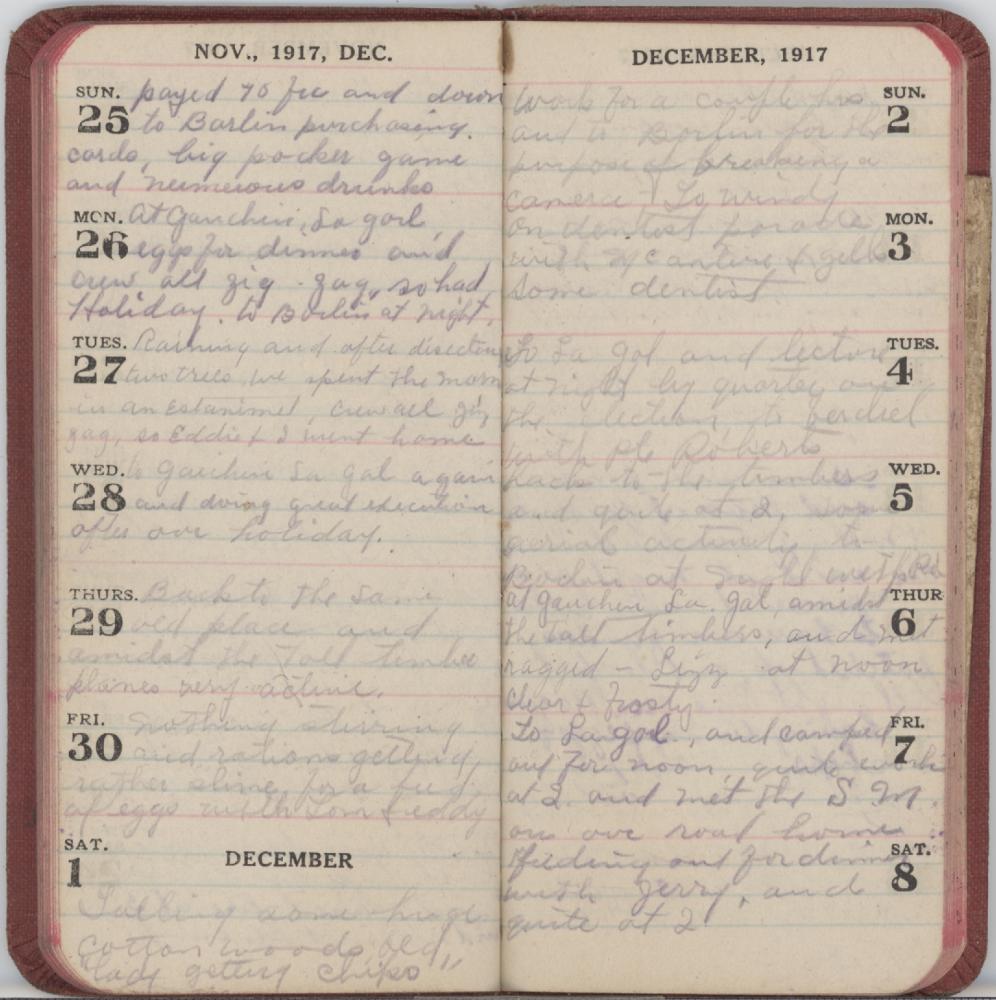 NOV., 1917, DEC.
SUN.
25
payed 70 frc and down
to Barlin purchasing.
cards, big pocker game
and numerous drunks
MON.
26
At Gauchin, La gaol,
eggs for dinner and
crew all zig-zag, so had
Holiday. to Barlin at night.
TUES.
27
Raining and after disecting
two trees, we spent the morn
in an Estaminet, crew all zig
zag, so Eddie & I went home
WED.
28
to Gauchin La gal again
and doing great execution
after our holiday.
THURS.
29
Back to the same
old place and
amidst the Tall timber
planes very active.
FRI.
30
nothing stirring
and rations getting,
rather slim, for a feed,
of eggs with Tom & eddy
SAT.
1
DECEMBER
Falling some huge
cotton woods, old,
lady getting chips"
DECEMBER, 1917
SUN.
2
Work for a couple hrs
and to Barlin for the
purpose of breaking a
camera To windy
MON.
3
on dentist parade,
with
some dentist
TUES.
4
To La gal and lecture
at night by quarter on
the election, to
with Pte Roberts
WED.
5
back to the timbers
and quit at 2, some
aerial activity, to
at night with
THUR
6
at gauchin La. gal, amidst
the tall timbers, and met
ragged - Lizz at noon
clear & frosty.
FRI.
7
To La gal, and camped
out for noon, quite work
at 2. and met the S. M.
on our road home
SAT.
8
Feeding out for dinner
with Jerry, and
quite at 2